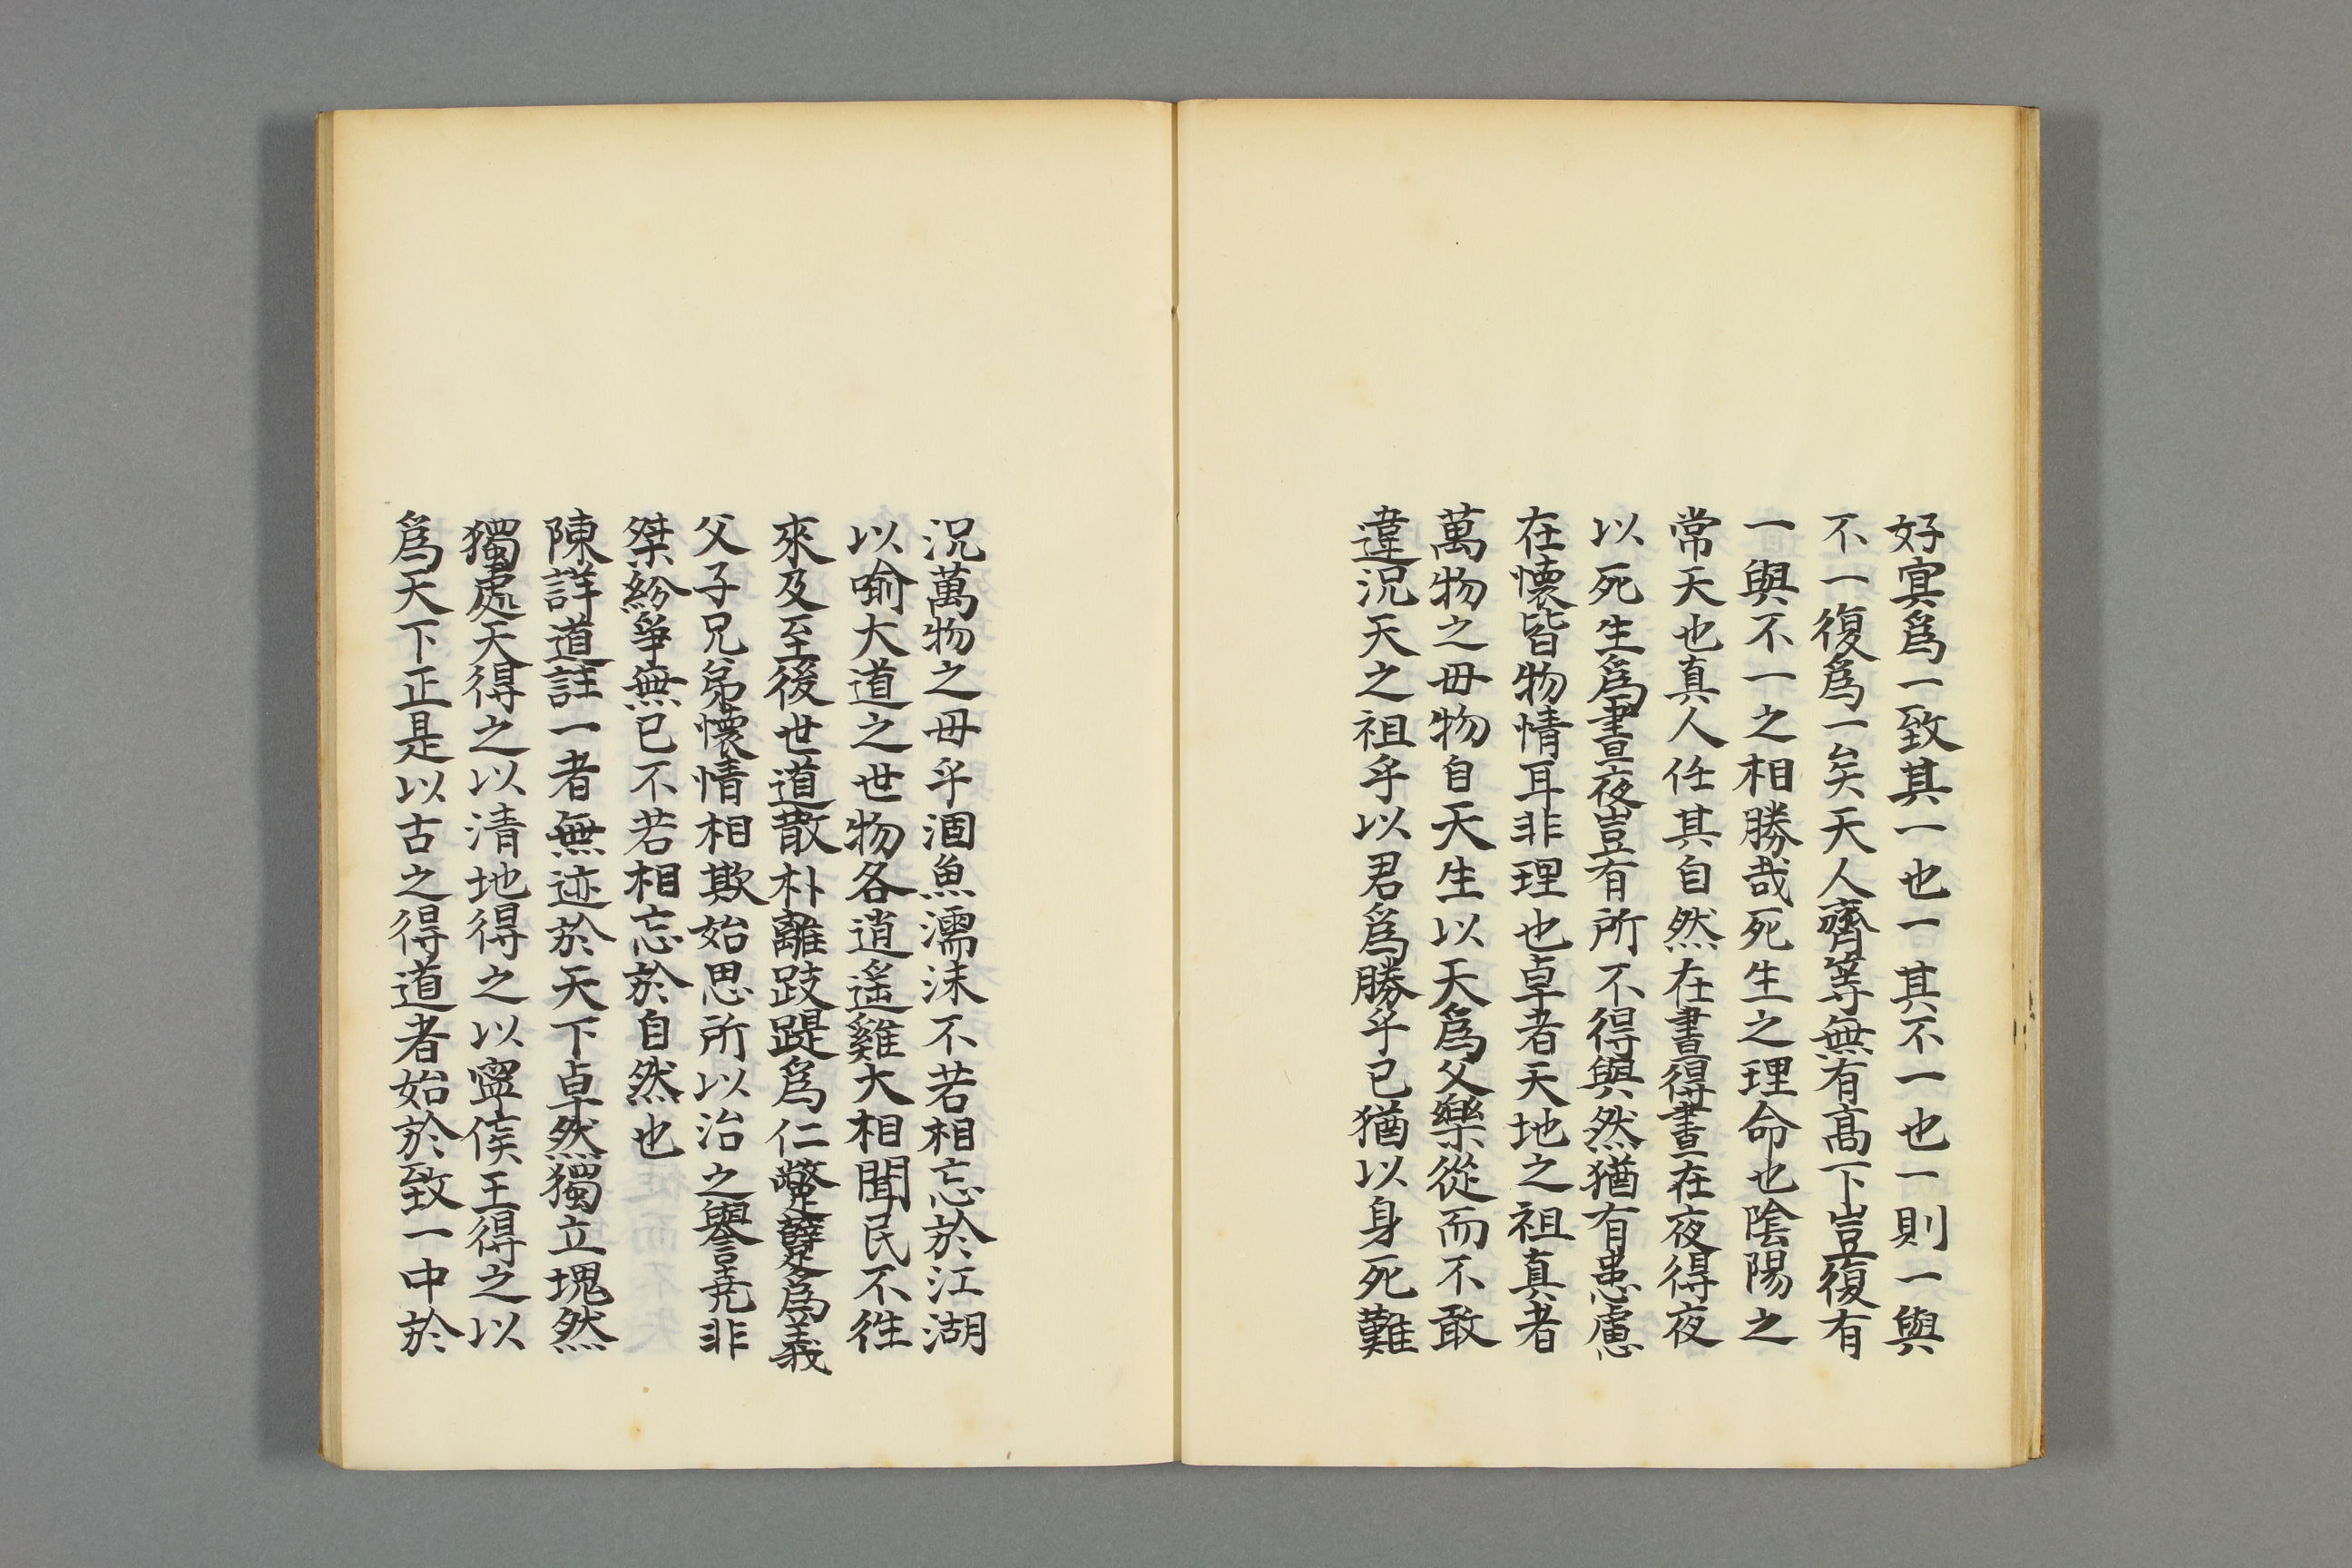 好寞爲一致其一也一其不一也一則一與
不一復爲一矣天人齊等無有髙下豈復有
一與不一之相勝哉死生之理命也陰陽之
常天也真人任其自然在晝得晝在夜得夜
以死生爲晝夜豈有所不得與然猶有患慮
在懷皆物情耳非理也卓者天地之祖真者
萬物之毋物自天生以天爲父樂從而不敢
違況天之祖乎以君爲勝乎已猶以身死難
況萬物之毋乎涸魚濡沫不若相忘於江湖
以喻大道之世物各逍遥雞犬相聞民不徃
來及至後世道散朴離跂踶爲仁蹩躠爲義
父子兄弟懷情相欺始思所以治之譽尭非
桀紛爭無已不若相忘於自然也
陳詳道註一者無迹於天下卓然獨立塊然
獨處天得之以清地得之以寧侯王得之以
爲天下正是以古之得道者始於致一中於